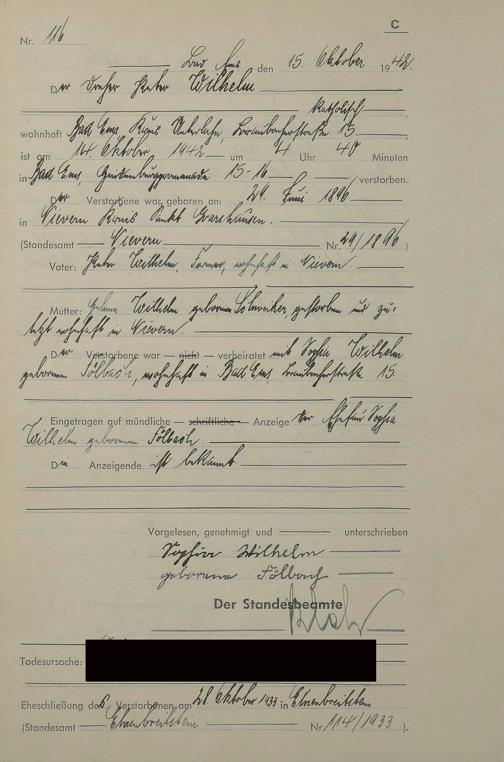 C
Nr. 116
Bad Ems den 15. Oktober 1942
Der Dreher Peter Wilhelm
katholisch
wohnhaft Bad Ems, Kreis Unterlahn, Braubacherstraße 15
ist am 14. Oktober 1942 um 4 Uhr 40 Minuten
in Bad Ems, 15-16 verstorben.
Der Verstorbene war geboren am 29. Juni 1896
in Nievern Kreis Sankt Goarshausen.
(Standesamt Nievern Nr. 29/1896)
Vater: Peter Wilhelm, Former, wohnhaft in Nievern
Mutter: Wilhelm geborene gestorben und zu-
letzt wohnhaft in Nievern.
Der Verstorbene war — nicht — verheiratet mit Sophia Wilhelm
geborenen Fölbach, wohnhaft in Bad Ems, Braubacherstraße 15.
Eingetragen auf mündliche — schriftliche — Anzeige der Ehefrau Sophia
Wilhelm geborenen Fölbach.
Die Anzeigende ist bekannt.
Vorgelesen, genehmigt und unterschrieben
Sophia Wilhelm
geborene Fölbach
Der Standesbeamte
Todesursache:
Eheschließung des Verstorbenen am 28. Oktober 1933 in Ehrenbreitstein
(Standesamt Ehrenbreitstein Nr. 114/1933).